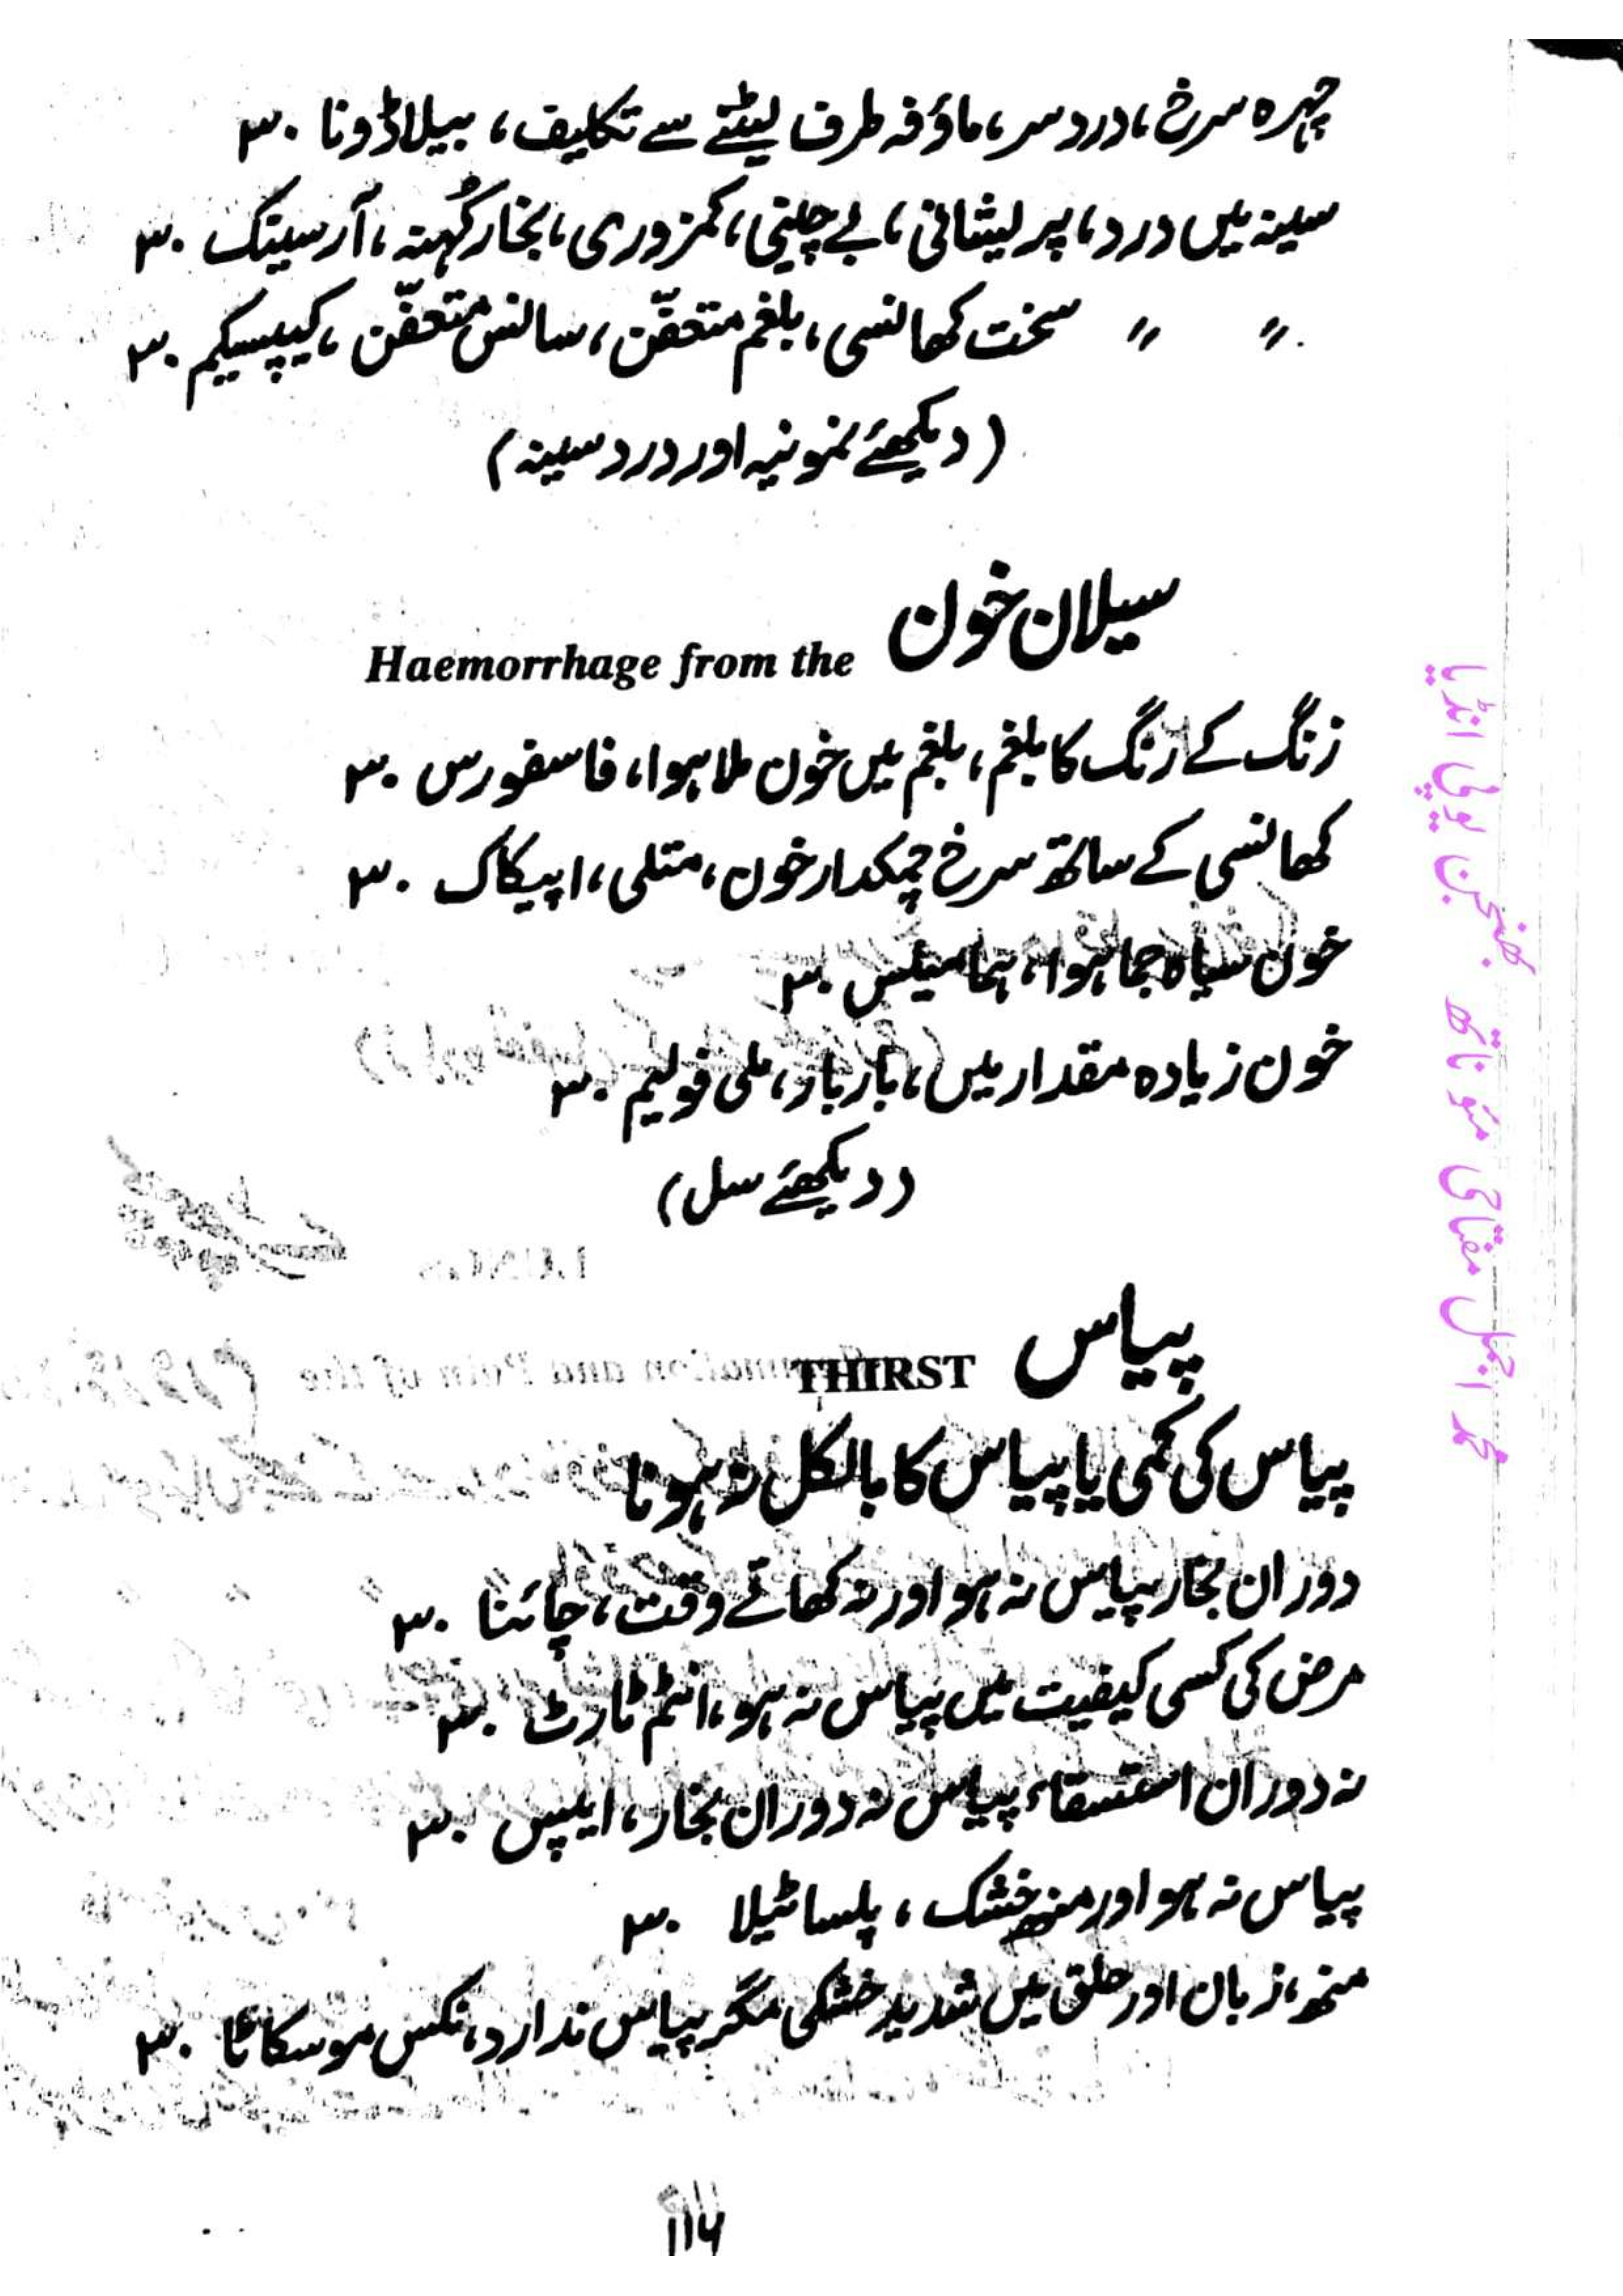 چہرہ سرخ، درد سر، ماؤفہ طرف لیٹنے سے تکلیف، بیلاڈونا ۳۰
سینہ میں درد، پریشانی، بے چینی، کمزوری، بخار کُہنہ، آرسینک ۳۰
〃 〃 سخت کھانسی، بلغم متعفّن، سانس متعفّن، کیپسیکم ۳۰
(دیکھئے نمونیہ اور درد سینہ)
سیلان خون Haemorrhage from the
زنگ کے رنگ کا بلغم، بلغم میں خون ملا ہوا، فاسفورس ۳۰
کھانسی کے ساتھ سرخ چمکدار خون، متلی، اپیکاک ۳۰
خون سیاہ جما ہوا، ہمامیلس ۳۰
خون زیادہ مقدار میں، بار بار، ملی فولیم ۳۰
(دیکھئے سل)
پیاس THIRST
پیاس کی کمی یا پیاس کا بالکل نہ ہونا
دوران بخار پیاس نہ ہو اور نہ کھانے وقت، چائنا ۳۰
مرض کی کسی کیفیت میں پیاس نہ ہو، انٹم ٹارٹ ۳۰
نہ دوران استسقاء پیاس نہ دوران بخار، ایپس ۳۰
پیاس نہ ہو اور منھ خشک، پلساٹیلا ۳۰
منھ، زبان اور حلق میں شدید خشکی مگر پیاس ندارد، نکس موسکاٹا ۳۰
۱۱۶
محمد اجمل مفتاحی مئو ناتھ بھنجن یوپی انڈیا